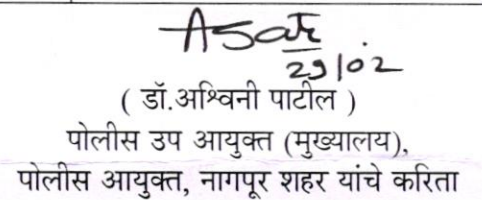 29/02
( डॉ.अश्विनी पाटील )
पोलीस उप आयुक्त (मुख्यालय),
पोलीस आयुक्त, नागपूर शहर यांचे करिता